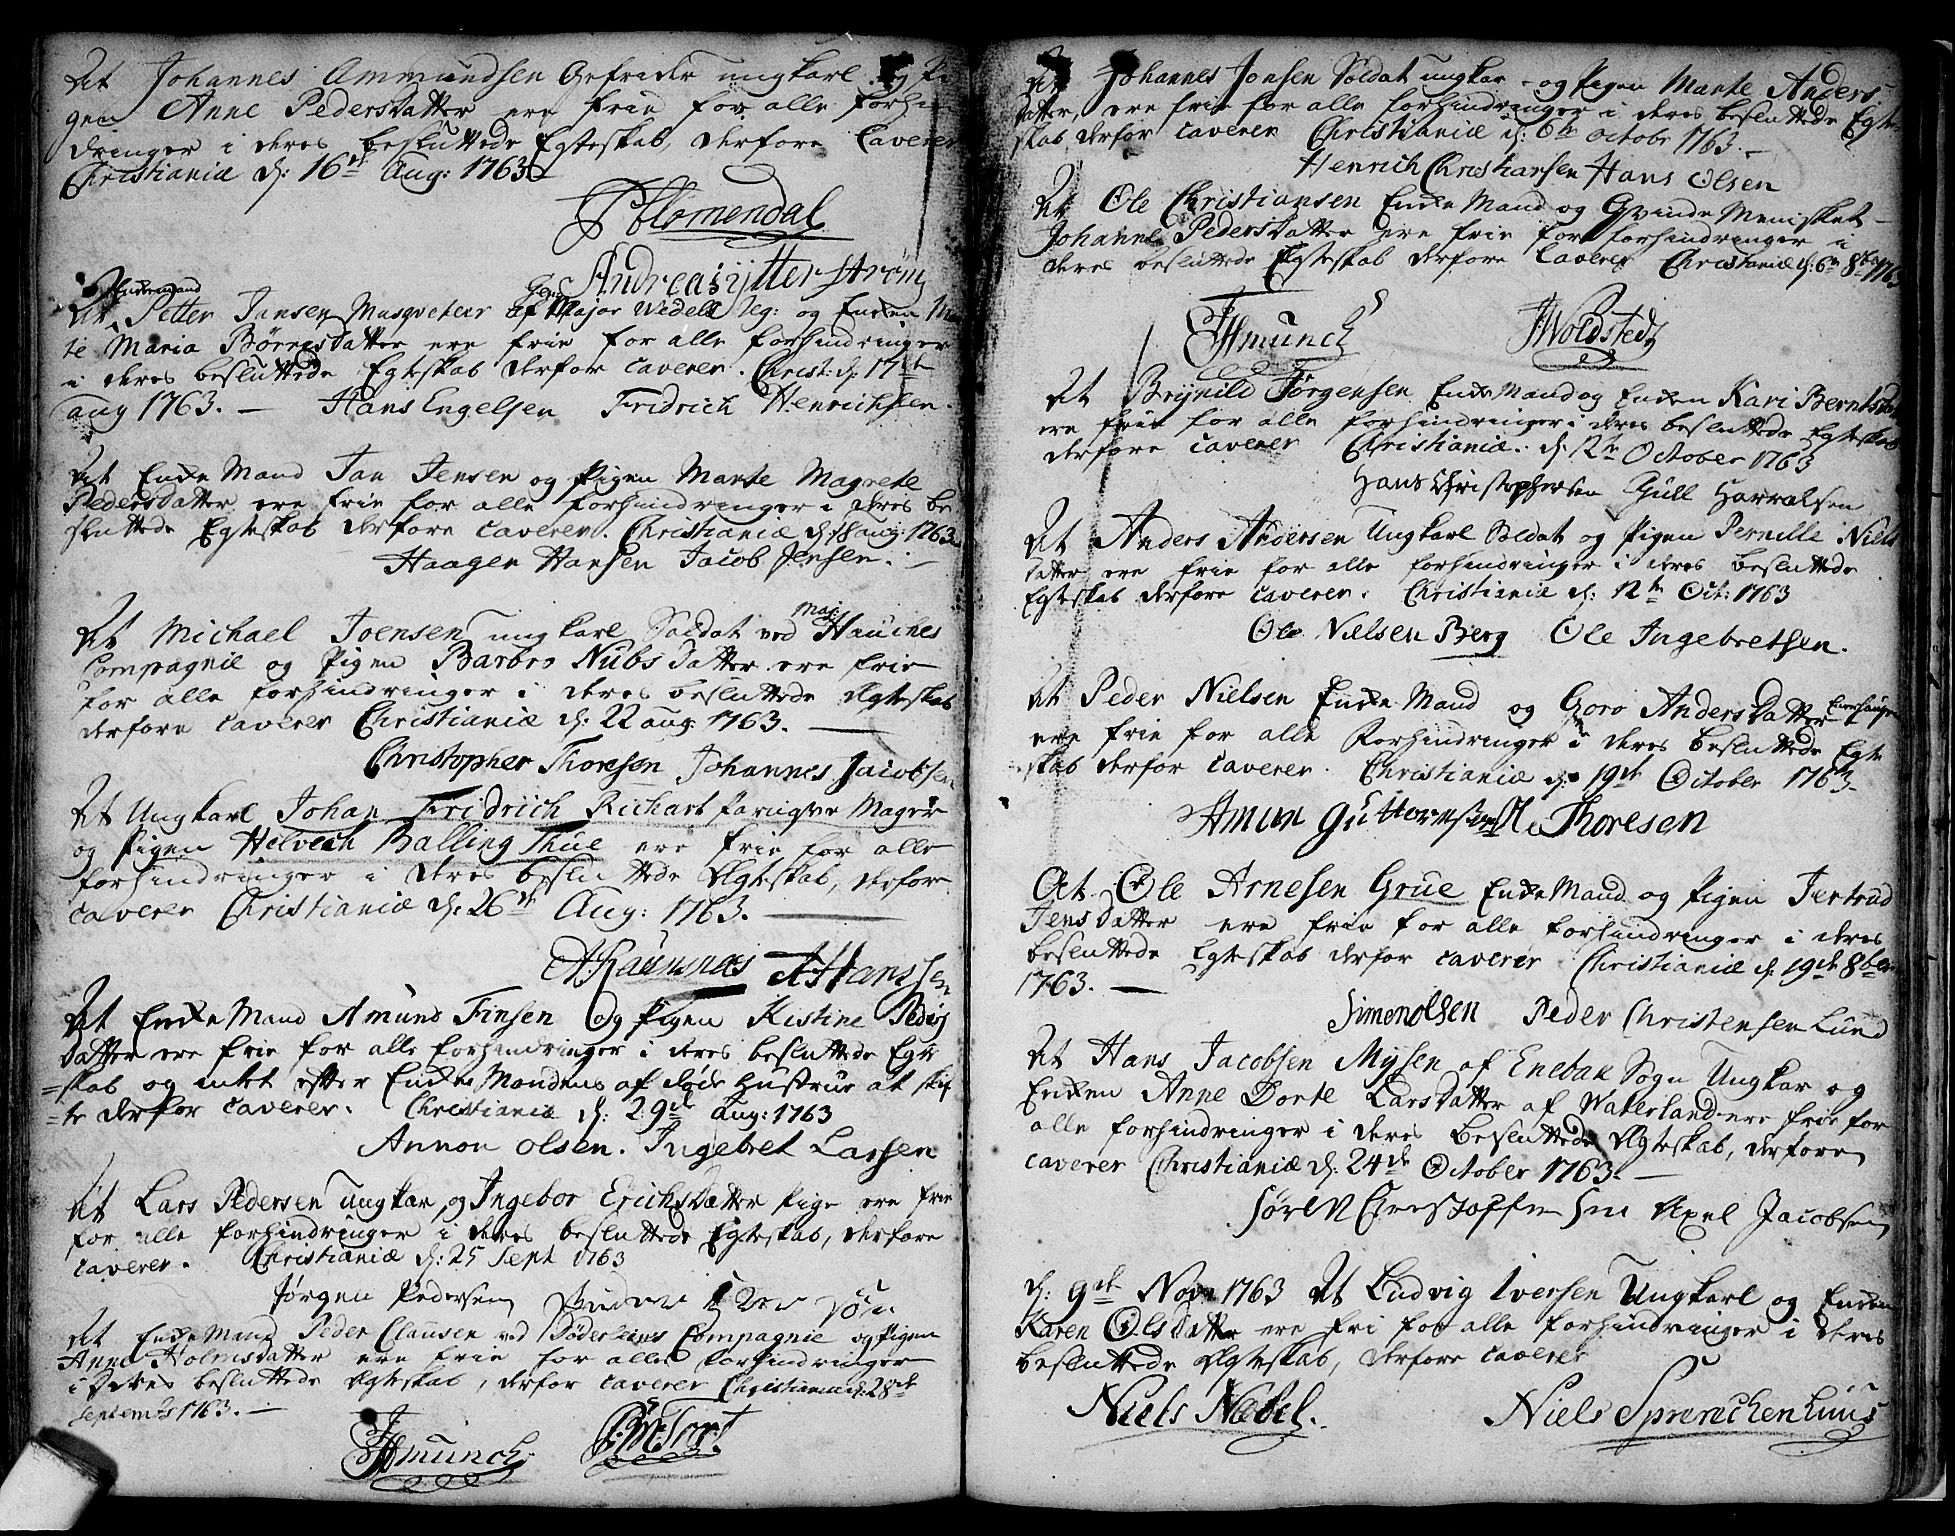 At Johannes Ammundsen Gefreider ungkarl og Pi
gen Anne Pedersdatter ere frie for alle forhin
dringer i deres besluttede Egteskab, derfore Caverer
Christianiæ d: 16de Aug: 1763
PBlomendal
Andreas ytterström
Enkemand
At Petter Jansen Musqveteer af Major Wedell Reg: og Enken Ma
te Maria Börresdatter ere frie for alle forhindringer
i deres besluttede Egteskab derfor caverer. Christ: d: 17de
aug 1763. — Hans Engelsen Fridrich Henrichsen.
At Enke Mand Jan Jensen og Pigen Marte Magrete
Pedersdatter ere frie for alle forhindringer i deres be
sluttede Egteskab derfore caverer. Christianiæ d: 18 aug: 1763
Haagen Hansen Jacob Jensen. —
Maj:
At Michael Joensen ungkarl Soldat ved Hauches
Compagnie og Pigen Barbro Nubsdatter ere frie
for alle forhindringer i deres besluttede Ægteskab
derfore caverer Christianiæ d: 22 aug: 1763. —
Christopher Thoresen Johannes Jacobsen
At Ungkarl Johan Fridriich Richart Parugver Mager
og Pigen Helvech Balling Thue ere frie for alle
forhindringer i deres besluttede Ægteskab, derfore
caverer Christianiæ d: 26de Aug: 1763. —
ARaumnæs AHanssen
At Enke Mand Amund Finsen og Pigen Kistine Peders
datter ere frie for alle forhindringer i deres besluttede Egte
=skab og intet efter Enke Mandens af døde Hustrue at skif
=te derfor caverer. Christianiæ d: 29de aug: 1763
Annon olsen. Ingebret Larsen
At Lars Pedersen ungkar, og Ingebor Erichsdatter Pige ere frie
for alle forhindringer i deres besluttede Egteskab, derfore
caverer. Christianiæ d: 25 Sept 1763
Jørgen Pedersen
At Enke Mand Peder Clausen ved Böderleins Compagnie og Pigen
Anne Holmsdatter ere frie for alle forhindringer
i deres besluttede Ægteskab, derfor caverer Christianiæ d: 28de
septembr 1763. —
Hmunch
At Johannes Jonsen Soldat ungkar og Pigen Marte Anders
datter, ere frie for alle forhindringer i deres besluttede Egte
skab derfor caverer Christianiæ d: 6te octobr 1763. —
Henrich Christiansen Hans Olsen
At Ole Christiansen Enke Mand og Qvinde Mennisket
Johanne Pedersdatter ere frie for forhindringer i
deres besluttede Egteskab derfore caverer Christianiæ d: 6te 8br 1763
Hmunch Woldsted
At Brynild Jörgensen Enke Mand og Enken Kari Berntsdatter
ere frie for alle forhindringer i deres besluttede Egteskab
derfore caverer Christianiæ. d: 12te October 1763
Hans Christophersen Gull Harralsen
At Anders Andersen Ungkarl Soldat og Pigen Pernille Niels
datter ere frie for alle forhindringer i deres besluttede
Egteskab derfore caverer. Christianiæ d: 12te Oct: 1763
Ole Nielsen Berg Ole Ingebretsen.
At Peder Nielsen Enke Mand og Goro Andersdatter
ere frie for alle Forhindringer i deres besluttede Egte
skab derfor caverer. Christianiæ d: 19de October 1763.
Amun Guttormsen Ole Thoresen
At Ole Arnesen Grue Enke Mand og Pigen Jertrud
Jensdatter ere frie for alle forhindringer i deres
besluttede Egteskab derfor caverer Christianiæ d: 19de 8ber
1763. —
Simenolsen Peder Christensen Lund
At Hans Jacobsen Mysen af Enebak Sogn Ungkar og
Enken Anne Dorte Larsdatter af Wakerland ere frie for
alle forhindringer i deres besluttede Ægteskab, derfore
caverer Christianiæ d: 24de October 1763. —
Sören Christoffersen Axel Jacobsen
d: 9de Novr 1763 At Ludvig Iversen Ungkarl og Enken
Karen Olsdatter ere fri for alle forhindringer i deres
besluttede Ægteskab, derfore caverer
Niels Næbel. Niels Sprenchenhuus